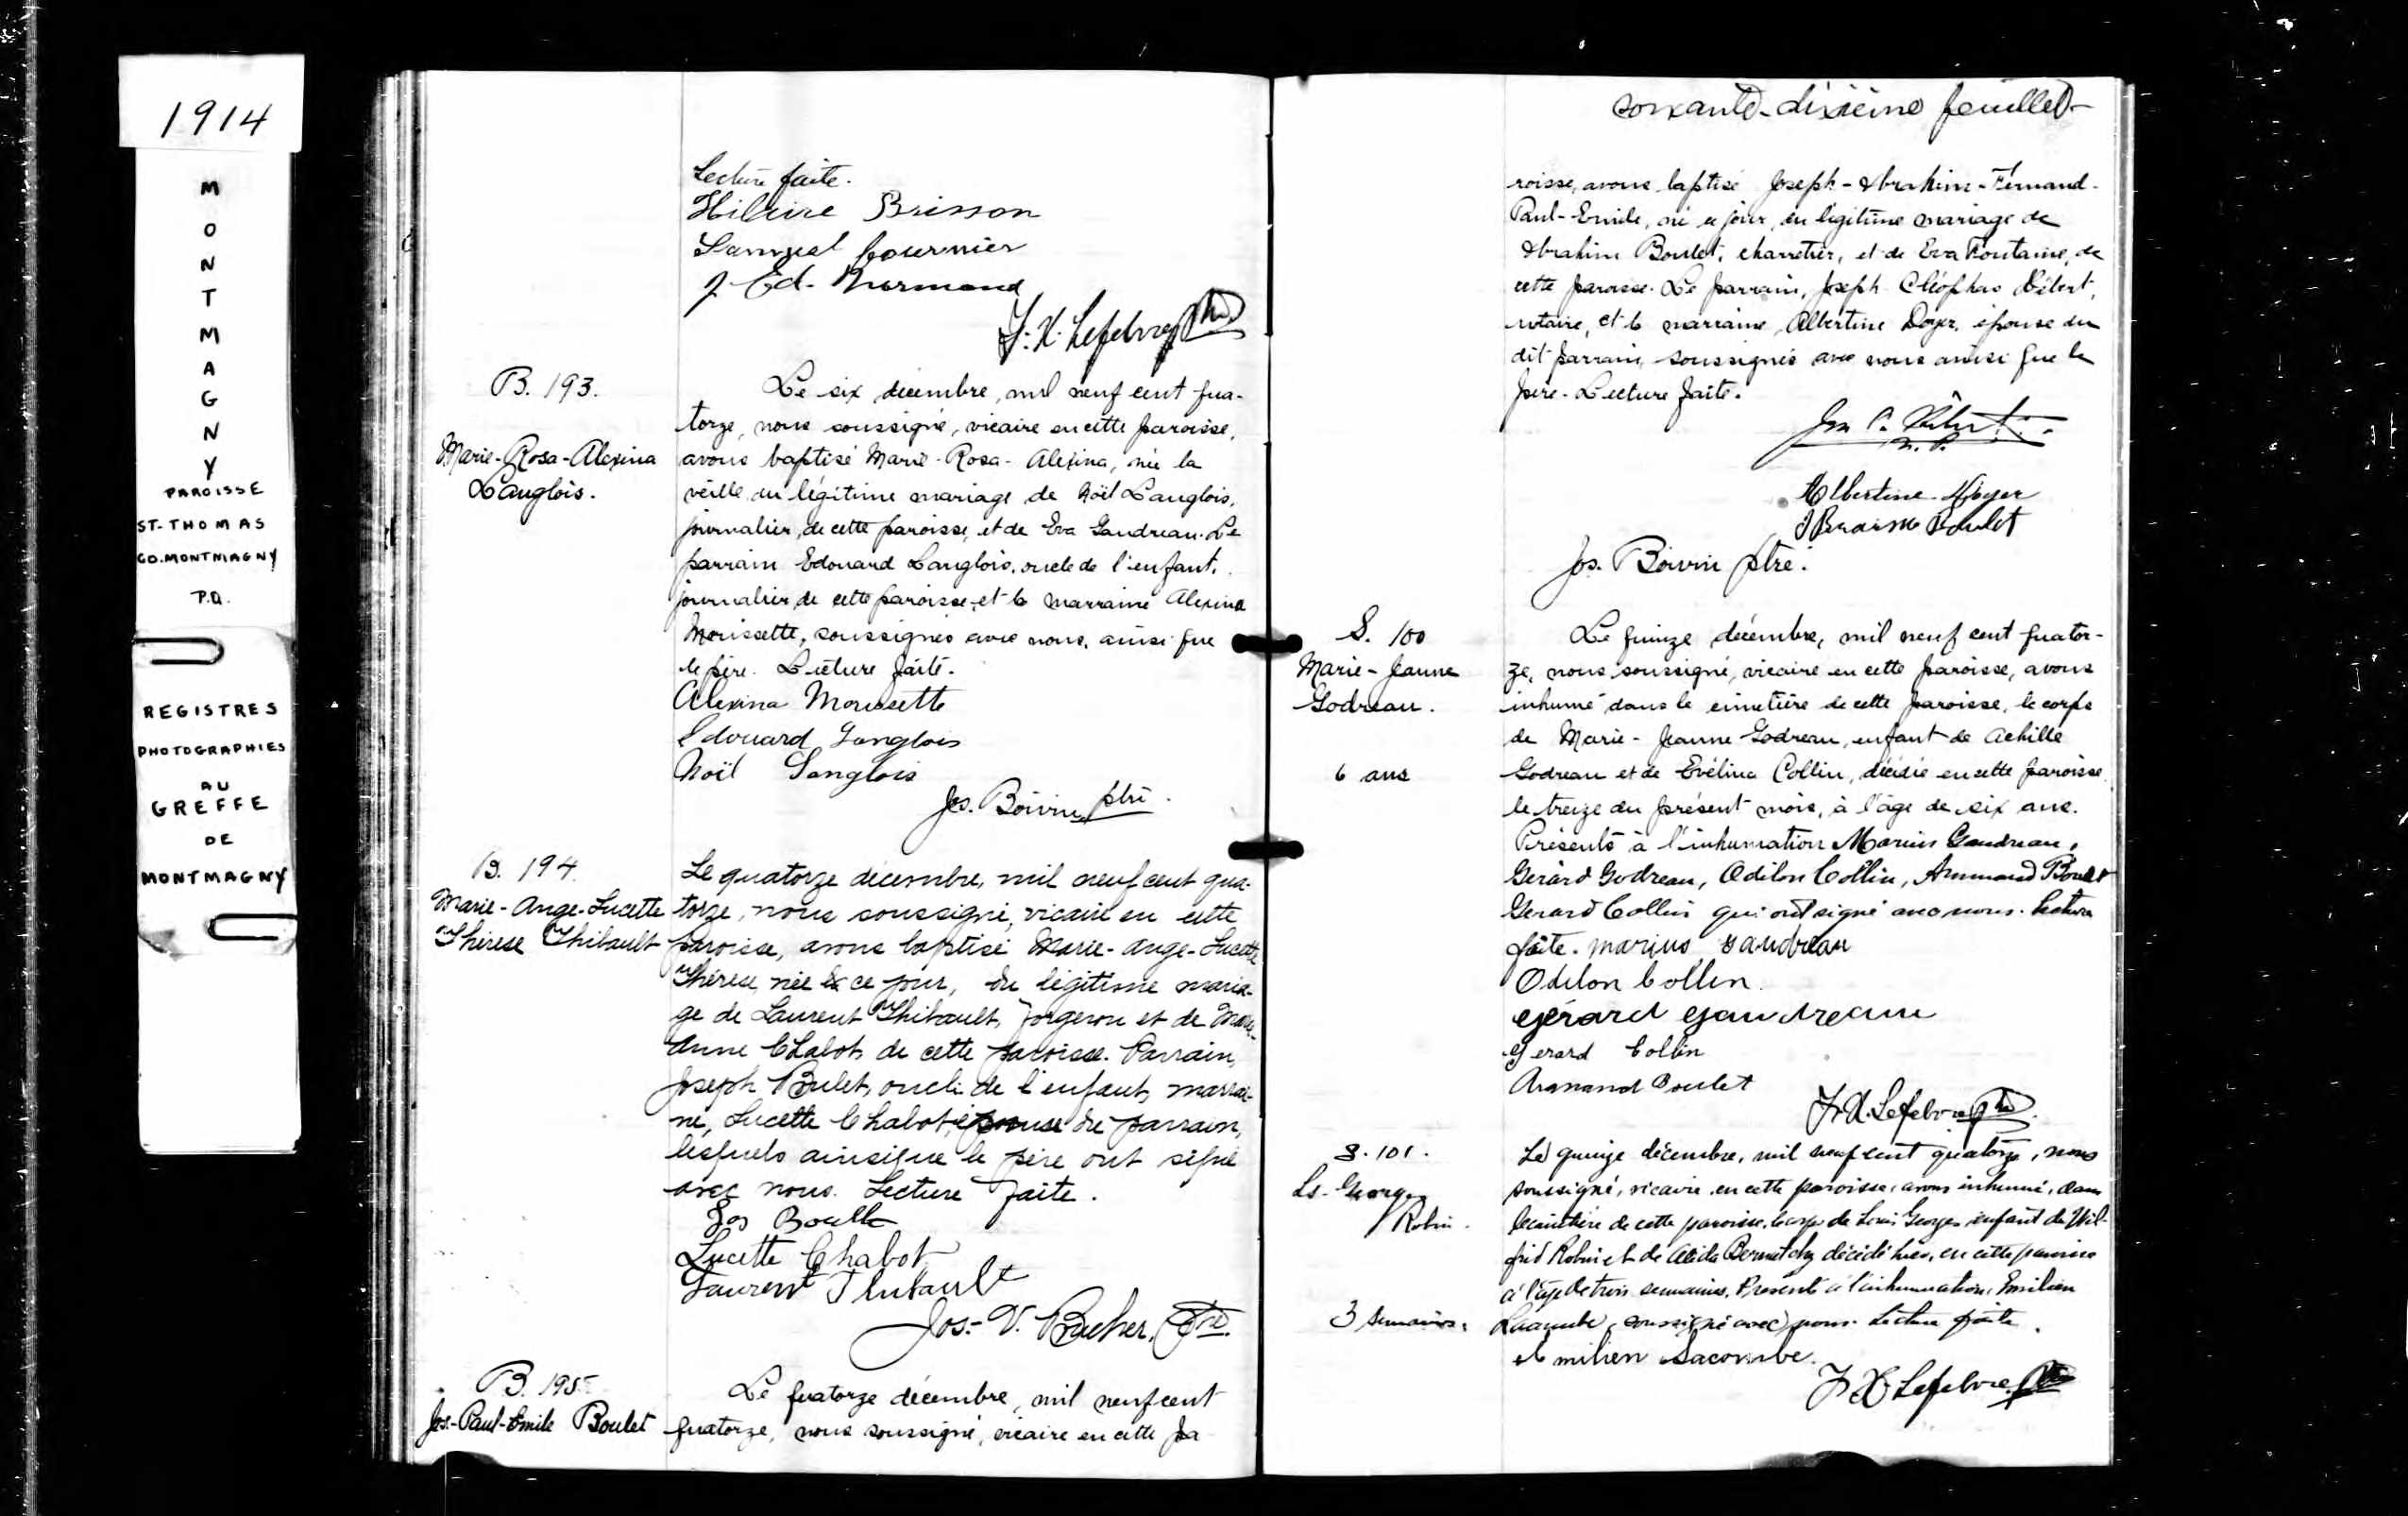 1914
MONTMAGNY
PAROISSE
ST-THOMAS
CO. MONTMAGNY
P.Q.
REGISTRES
PHOTOGRAPHIES
AU
GREFFE
DE
MONTMAGNY
Lecture faite.
Hilaire Brisson
Samuel Cournier
J. Ed. Normand
F. X. Lefebvre Ptre
B. 193.
Marie-Rosa-Alexina
Langlois.
Le six décembre, mil neuf cent qua-
torze, nous soussigné, vicaire en cette paroisse,
avons baptisé Marie-Rosa-Alexina, née la
veille du légitime mariage de Noël Langlois,
journalier, de cette paroisse, et de Eva Gaudreau. Le
parrain Edouard Langlois, oncle de l'enfant,
journalier de cette paroisse, et la marraine Alexina
Morissette, soussignés avec nous, ainsi que
le père. Lecture faite.
Alexina Morissette
Edouard Langlois
Noël Langlois
Jos. Boivin ptre.
B. 194.
Marie-Ange-Lucette
Thérèse Thibault
Le quatorze décembre, mil neuf cent qua-
torze, nous soussigné, vicaire en cette
paroisse, avons baptisé Marie-Ange-Lucette
Thérèse, née ce jour, du légitime maria-
ge de Laurent Thibault, forgeron et de Marie-
Anne Chabot, de cette paroisse. Parrain,
Joseph Boulet, oncle de l'enfant, marrai-
ne, Lucette Chabot, épouse du parrain,
lesquels ainsi que le père ont signé
avec nous. Lecture faite.
Jos Boulet
Lucette Chabot
Laurent Thibault
Jos.-V. Bucher, Ptre.
B. 195
Jos.-Paul-Emile Boulet
Le quatorze décembre, mil neuf cent
quatorze, nous soussigné, vicaire en cette pa
soixante-dixième feuillet
roisse, avons baptisé Joseph-Abrahim-Fernand-
Paul-Emile, né ce jour, du légitime mariage de
Abrahim Boulet, charretier, et de Eva Fontaine, de
cette paroisse. Le parrain, Joseph Cléophas Hébert,
notaire, et la marraine, Albertine Doyer, épouse du
dit parrain, soussignés avec nous ainsi que le
père. Lecture faite.
Jos C. Hébert
N. P.
Albertine Doyer
Boulet
Jos. Boivin ptre.
S. 100
Marie-Jeanne
Godreau.
6 ans
Le quinze décembre, mil neuf cent quator-
ze, nous soussigné, vicaire en cette paroisse, avons
inhumé dans le cimetière de cette paroisse, le corps
de Marie-Jeanne Godreau, enfant de Achille
Godreau et de Evélina Collin, décédée en cette paroisse,
le treize du présent mois, à l'âge de six ans.
Présents à l'inhumation Marius Gaudreau,
Gérard Godreau, Odilon Collin, Armand Boulet
Gerard Collin qui ont signé avec nous. Lecture
faite. Marius Gaudreau
Odilon Collin.
Gérard Gaudreau
Gerard Collin
Armand Boulet
F. X. Lefebvre Ptre.
S. 101.
Ls-Georges
Robin.
3 semaines.
Le quinze décembre, mil neuf cent quatorze, nous
soussigné, vicaire en cette paroisse, avons inhumé, dans
le cimetière de cette paroisse, le corps de Louis Georges enfant de Wil-
frid Robin et de Alida Bernatchez décédé hier, en cette paroisse
à l'âge de trois semaines. Présent à l'inhumation, Emilien
Lacombe, soussigné avec nous. Lecture faite.
Emilien Lacombe.
F X Lefebvre Ptre